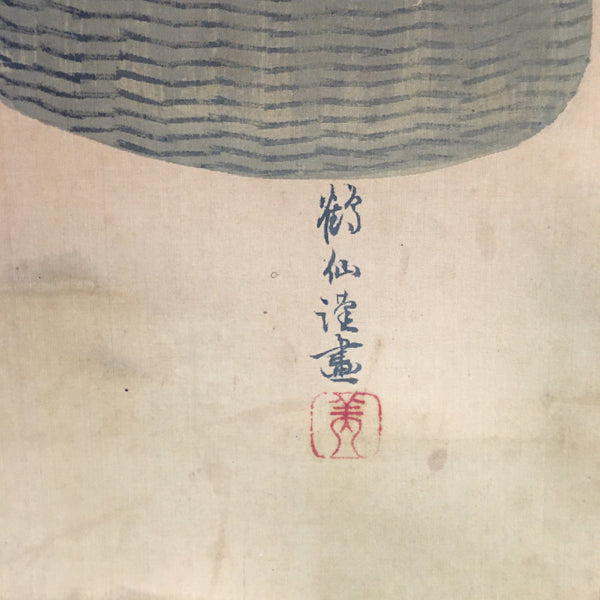 鶴仙謹畫